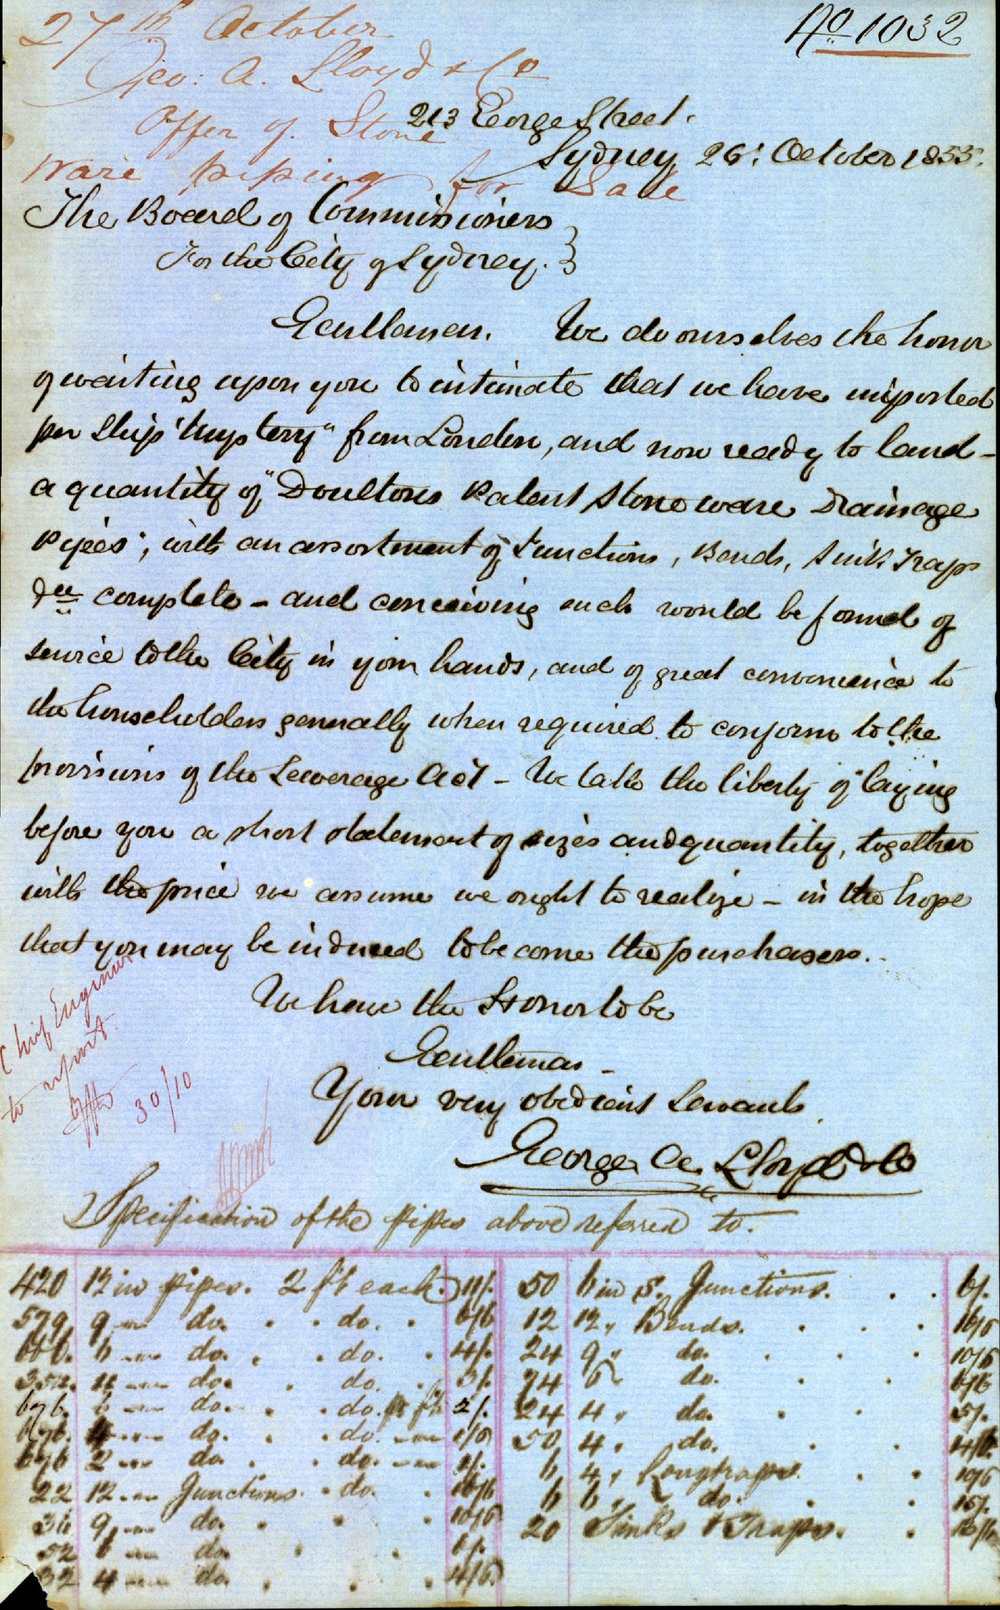 No 1032
27th October
Geo: A. Lloyd & Co
Offer of Stone
ware piping for Sale
213 George Street.
Sydney 26: October 1855.
The Board of Commissioners
For the City of Sydney.
Gentlemen. We do ourselves the honor
of waiting upon you to intimate that we have imported
per Ship "Mystery" from London, and now ready to land -
a quantity of "Doultons Patent Stoneware Drainage
Pipes", with an assortment of Junctions, Bends, Sink Traps
&c complete - and conceiving such would be found of
service to the City in your hands, and of great convenience to
the householders generally when required to conform to the
provisions of the Sewerage Act - We take the liberty of laying
before you a short statement of sizes and quantity, together
with the price we assume we ought to realize - in the hope
that you may be induced to become the purchasers.
We have the Honor to be
Gentlemen -
Your very obedient Servants
George A. Lloyd & Co
Chief Engineer
to report
30/10
Specification of the pipes above referred to.
420 12 in pipes. 2 ft each. 11/.
579 9 " do. . do. . 6/6
6 " do. . do. . 4/.
4 " do. . do. 3/.
676 6 " do. . do. 2/.
676 4 " do. . do.
676 2 " do. . do. 1/.
22 12 " Junctions. . do. 16/6
36 9 " do. . 10/6
52 6 " do. 6/.
32 4 " do. . 4/6
50 6 in S. Junctions. . . 6/.
12 12 " Bends. . . . 16/6
24 9 " do. . . 10/6
74 6 " do. . . 6/6
24 4 " do. . . 5/.
50 4 " do. . . 4/6
6 4 " Longtraps. . . 10/6
6 6 " do. . . 15/.
20 Sinks & Traps. .